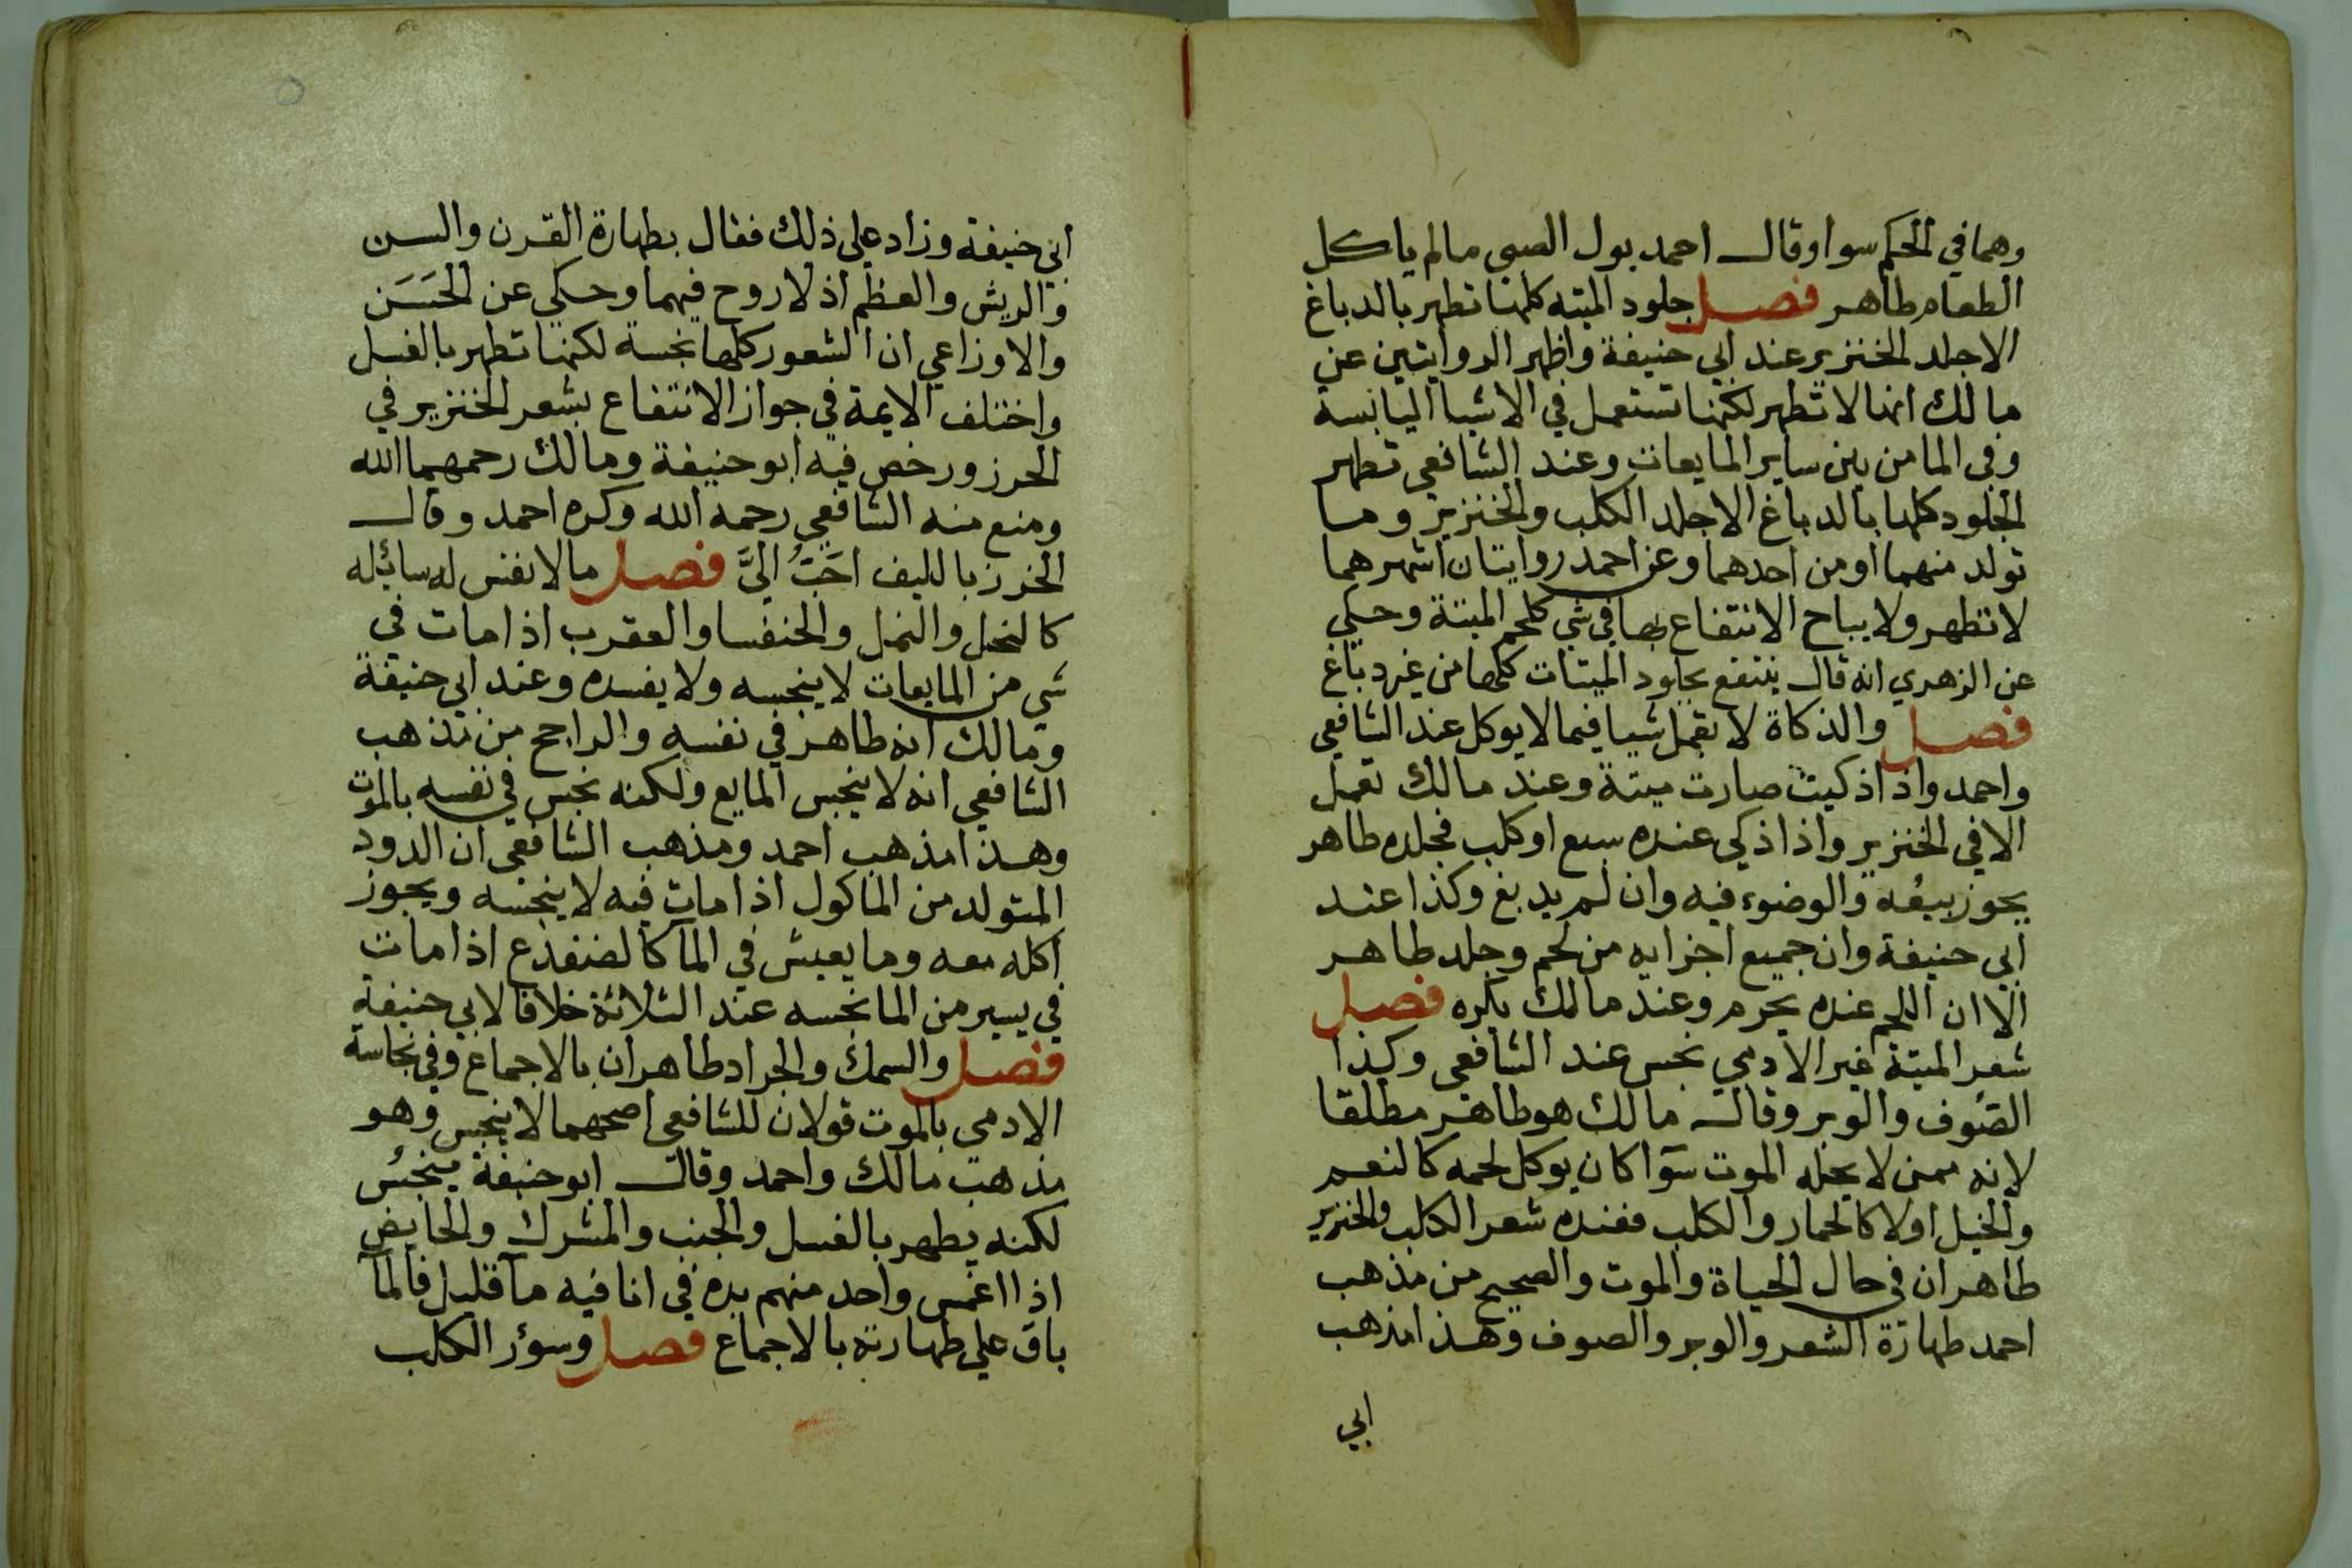 وهما في الحكم سوا وقال احمد بول الصبي ما لم ياكل
الطعام طاهر فصل جلود الميته كلها تطهر بالدباغ
الا جلد الخنزير عند ابي حنيفة واظهر الروايتين عن
مالك انها لا تطهر لكنها تستعمل في الاشيا اليابسة
وفي الما من بين ساير المايعات وعند الشافعي تطهر
الجلود كلها بالدباغ الا جلد الكلب والخنزير وما
تولد منهما او من احدهما وعن احمد روايتان اشهرهما
لا تطهر ولا يباح الانتفاع بها في شي كلحم الميتة وحكي
عن الزهري انه قال ينتفع بجلود الميتات كلها من غير دباغ
فصل والذكاة لا تعمل شيا فيما لا يوكل عند الشافعي
واحمد واذا ذكيت صارت ميتة وعند مالك تعمل
الا في الخنزير واذا ذكي عنده سبع او كلب فجلده طاهر
يجوز بيعه والوضوء فيه وان لم يدبغ وكذا عند
ابي حنيفة وان جميع اجزايه من لحم وجلد طاهر
الا ان اللحم عنده يحرم وعند مالك يكره فصل
شعر الميتة غير الادمي نجس عند الشافعي وكذا
الصوف والوبر وقال مالك هو طاهر مطلقا
لانه ممن لا يحله الموت سوآ كان يوكل لحمه كالنعم
والخيل اولا كالحمار والكلب فعنده شعر الكلب والخنزير
طاهران في حال الحياة والموت والصحيح من مذهب
احمد طهارة الشعر والوبر والصوف وهذا مذهب
ابي
ابي حنيفة وزاد علي ذلك فقال بطهارة القرن والسن
والريش والعظم اذ لا روح فيهما وحكي عن الحَسَن
والاوزاعي ان الشعور كلها نجسة لكنها تطهر بالغسل
واختلف الايمة في جواز الانتفاع بشعر الخنزير في
الخرز ورخص فيه ابو حنيفة ومالك رحمهما الله
ومنع منه الشافعي رحمه الله وكره احمد وقال
الخرز بالليف احَبُّ اليَّ فصل ما لا نفس له سائله
كالنحل والنمل والخنفسا والعقرب اذا مات في
شي من المايعات لا ينجسه ولا يفسده وعند ابي حنيفة
ومالك انه طاهر في نفسه والراجح من مذهب
الشافعي انه لا ينجس المايع ولكنه نجس في نفسه بالموت
وهذا مذهب احمد ومذهب الشافعي ان الدود
المتولد من الماكول اذا مات فيه لا ينجسه ويجوز
اكله معه وما يعيش في المآ كالضفدع اذا مات
في يسير من الما نجسه عند الثلاثة خلافا لابي حنيفة
فصل والسمك والجراد طاهران بالاجماع وفي نجاسة
الادمي بالموت قولان للشافعي اصحهما لا ينجس وهو
مذهب مالك واحمد وقال ابو حنيفة ينجسُ
لكنه يطهر بالغسل والجنب والمشرك والحايض
اذا اغمس واحد منهم يده في انا فيه مآ قليل فالمآ
باق علي طهارته بالاجماع فصل وسؤر الكلب